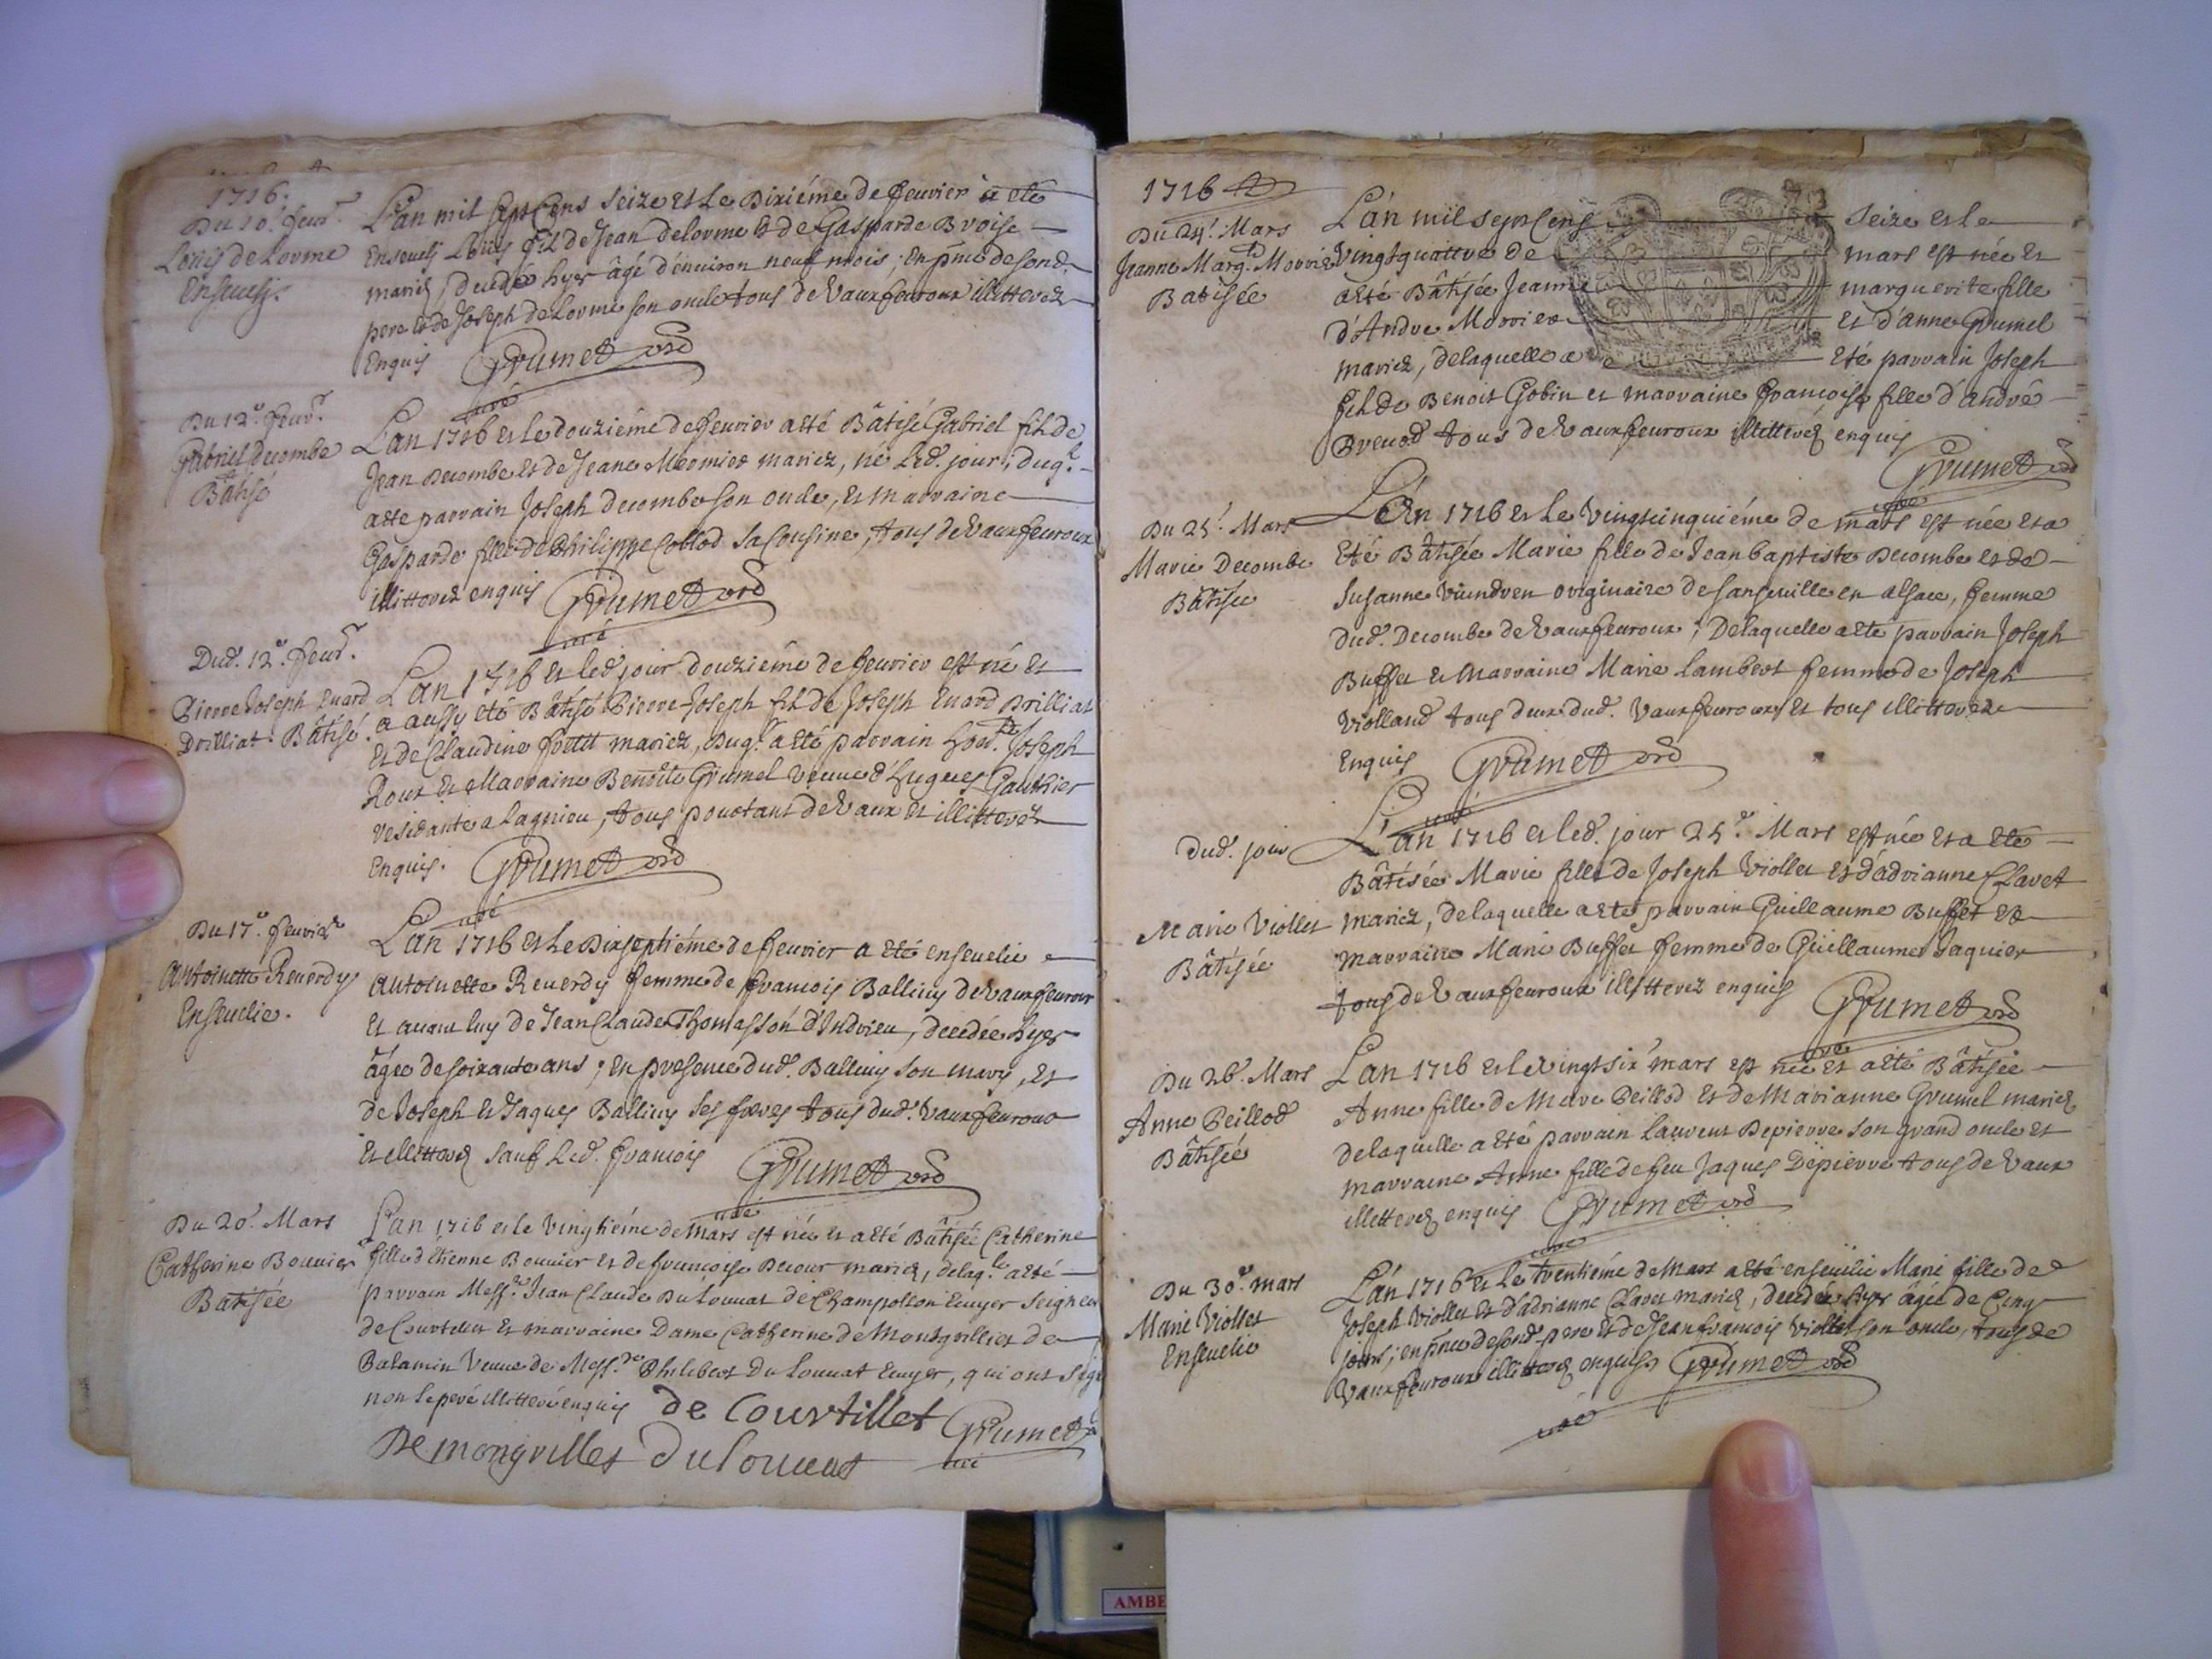 1716.
Du 10.e feur.r
Loüis de Lorme
Enseuely.
L'an mil sept Cens Seize et Le Dixiéme de feuvier a eté
Enseuely Loüis fil de Jean delorme et de Gasparde Bvoise
mariez, decedé hyer âgé d'enuiron neuf mois, En pnce de sond.
pere et de Joseph de Lorme son oncle tous de Vaux feuroux illitterez
Enquis Grumet curé
Du 12.e feur.r
Gabriel Decombe
Bâtisé
L'an 1716 et le douziéme de feuvier a esté Bâtisé Gabriel fil de
Jean Decombe et de Jeane Mermier mariez, né led. jour; duq.l
a esté parrain Joseph decombe son oncle, et marraine
Gasparde fille de Philippe Collod sa Cousine, tous de Vaux feuroux
illitterez enquis Grumet curé
Dud. 12.e feur.r
Pierre Joseph Euard
Drilliat. Bâtisé.
L'an 1716 et led. jour douziéme de feuvier est né et
a aussy eté Bâtisé Pierre-Joseph fil de Joseph Euard Drilliat
et de Claudine mariez, Duq.l a eté parrain hon.te Joseph
Roux et Marraine Benoîte Grumel veuue d'hugues Gauthier
residante a Lagnieu, tous pourtant de Vaux et illitterez
Enquis. Grumet curé
Du 17.e feuvier
Antoinette Reuerdy
Enseuelie.
L'an 1716 et Le Dixseptiéme de feuvier a eté enseuelie
Antoinette Reuerdy femme de francois Balliuy de vaux feuroux
et auant luy de Jean Claude Thomasson d'Indrieu, decedée hyer
âgée de soixante ans, en presence dud. Balliuy son mary, et
de Joseph et Jaques Balliuy ses freres tous dud. Vaux feuroux
et illitterez sauf Led. francois Grumet curé
Du 20.e Mars
Catherine Bouuier
Batisée
L'an 1716 et le vingtiéme de Mars est née et a eté Bâtisée Catherine
fille d'Etienne Bouuier et de francoise Decour mariez, delaq.le a eté
parrain Mess.re Jean Claude Du Louuat de Champollon Ecuyer Seigneur
de Courtillet et marraine Dame Catherine de Montgrillet de
Balamin Veuue de Mess.re Philibert Du Louuat Ecuyer, qui ont signé
non le pere illitteré enquis de Courtillet Grumet
De mongrillet Du louuat curé
1716
Du 24.e Mars
Jeanne Marg.te Morrier
Batisée
L'an mil sept Cens Seize et le
Vingtquatre de mars est née et
a eté Bâtisée Jeanne marguerite fille
d'Andre Morrier et d'anne Grumel
mariez, delaquelle a eté parrain Joseph
fil de Benoit Gobin et marraine francoise fille d'andré
Breuod tous de Vaux feuroux illitterez enquis
Grumet curé
Du 25.e Mars
Marie Decombe
Bâtisée
L'an 1716 et Le Vingtcinquiéme de mars est née et a
Eté Bâtisée Marie fille de Jean baptiste Decombe et de
Susanne originaire de en alsace, femme
dud. Decombe de Vaux feuroux; Delaquelle a eté parrain Joseph
Buffet et Marraine Marie Lambert femme de Joseph
Violland tous deux dud. Vaux feuroux et tous illitterez
Enquis Grumet curé
Dud. jour
Marie Viollet
Bâtisée
L'an 1716 et led. jour 25.e Mars est née et a Eté
Bâtisée Marie fille de Joseph Viollet et d'adrianne Clavet
mariez, delaquelle a eté parrain Guillaume Buffet et
marraine Marie Buffet femme de Guillaume Jaquier
tous de Vaux feuroux illitterez enquis Grumet curé
Du 26.e Mars
Anne Peillod
Bâtisée
L'an 1716 et le Vingt six mars est née et a eté Bâtisée
Anne fille de Marc Peillod et de Marianne Grumel mariez
delaquelle a eté parrain Laurent Depierre son grand oncle et
marraine Anne fille de feu Jaques Depierre tous de Vaux
illitterez enquis Grumet curé
Du 30.e mars
Marie Viollet
Enseuelie
L'an 1716 et Le trentiéme de Mars a eté enseuelie Marie fille de
Joseph Viollet et d'adrianne Clavet mariez, decedée hyer âgée de Cinq
jours; en pnce desond. pere et de Jean francois Viollet son oncle, tous de
Vaux feuroux illitterez enquis Grumet curé
AMBE